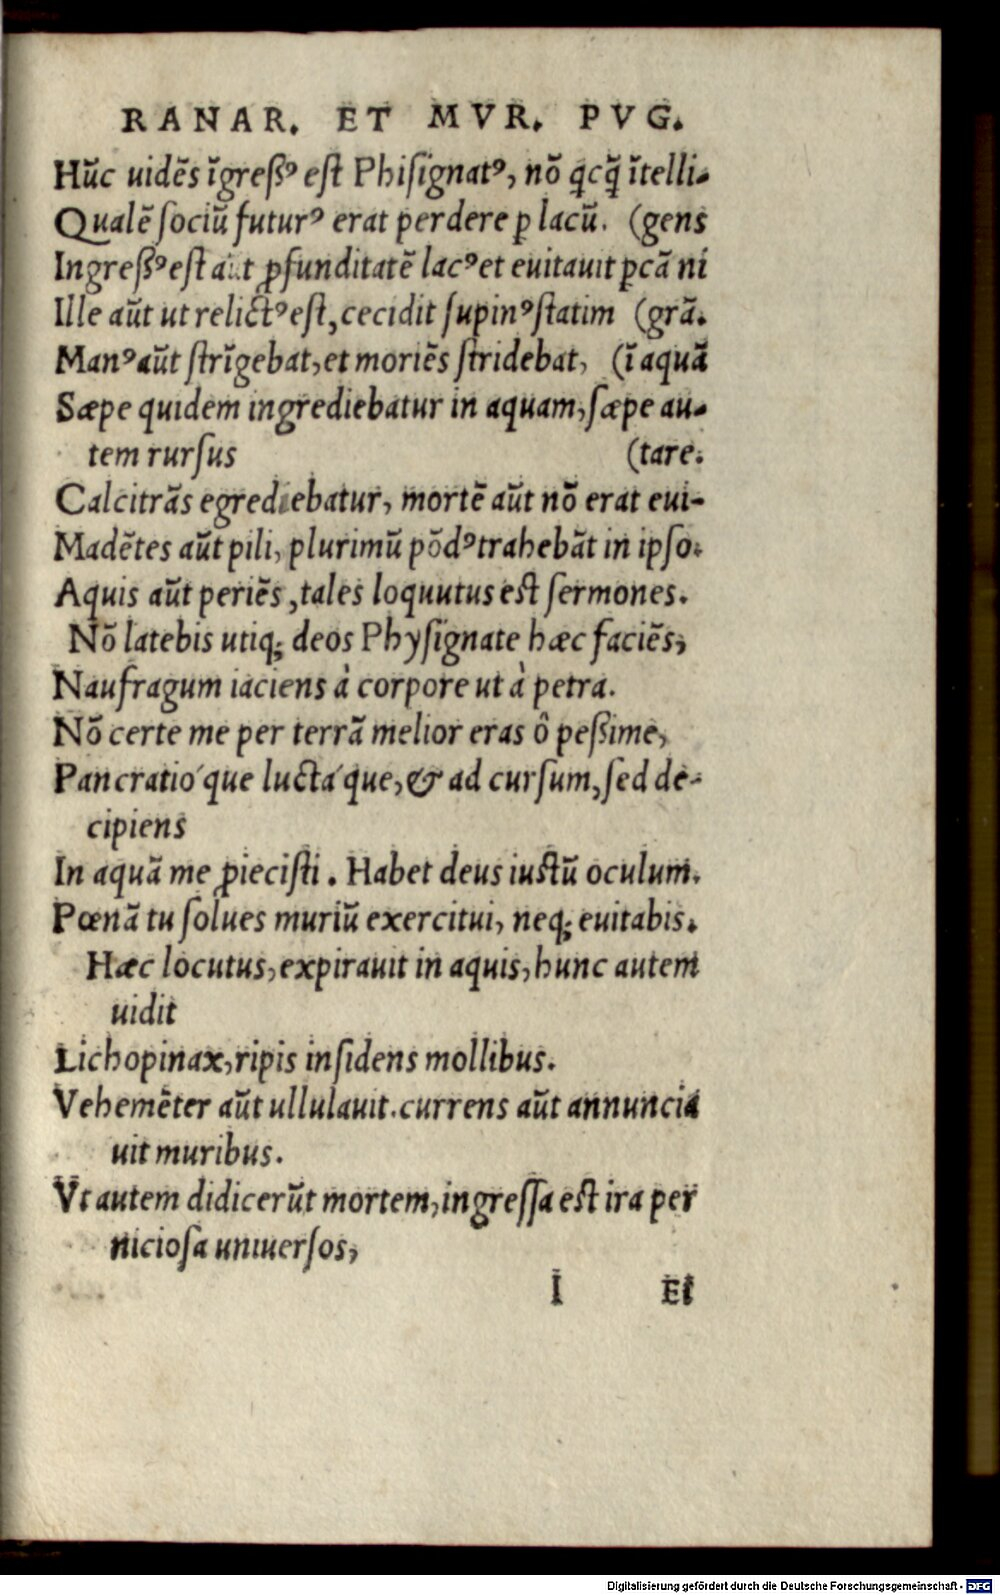 RANAR. ET MVR. PVG.
Hũc uidẽs ĩgreſſꝰ est Phiſignatꝰ, nõ qcq̃ ĩtelli-
Qualẽ ſociũ futurꝰ erat perdere ꝑ lacũ. (gens
Ingreſſꝰ eſt aũt ꝓfunditatẽ lacꝰ et euitauit ꝑcã ni
Ille aũt ut relictꝰ eſt, cecidit ſupinꝰ ſtatim (grã.
Manꝰ aũt ſtrĩgebat, et moriẽs ſtridebat, (ĩ aquã
Sæpe quidem ingrediebatur in aquam, ſæpe au-
tem rurſus (tare.
Calcitrãs egrediebatur, mortẽ aũt nõ erat eui-
Madẽtes aũt pili, plurimũ põdꝰ trahebãt in ipſo.
Aquis aũt periẽs, tales loquutus est ſermones.
Nõ latebis utiq; deos Phyſignate hæc faciẽs,
Naufragum iaciens à corpore ut à petra.
Nõ certe me per terrã melior eras ô peſſime,
Pancratio´que lucta´que, & ad curſum, ſed de-
cipiens
In aquã me ꝓiecisti. Habet deus iustũ oculum.
Pœnã tu ſolues muriũ exercitui, neq; euitabis.
Hæc locutus, expirauit in aquis, hunc autem
uidit
Lichopinax, ripis inſidens mollibus.
Vehemẽter aũt ullulauit. currens aũt annuncia
uit muribus.
Vt autem didicerũt mortem, ingreſſa est ira per
nicioſa uniuerſos,
I Et
Digitalisierung gefördert durch die Deutsche Forschungsgemeinschaft - DFG